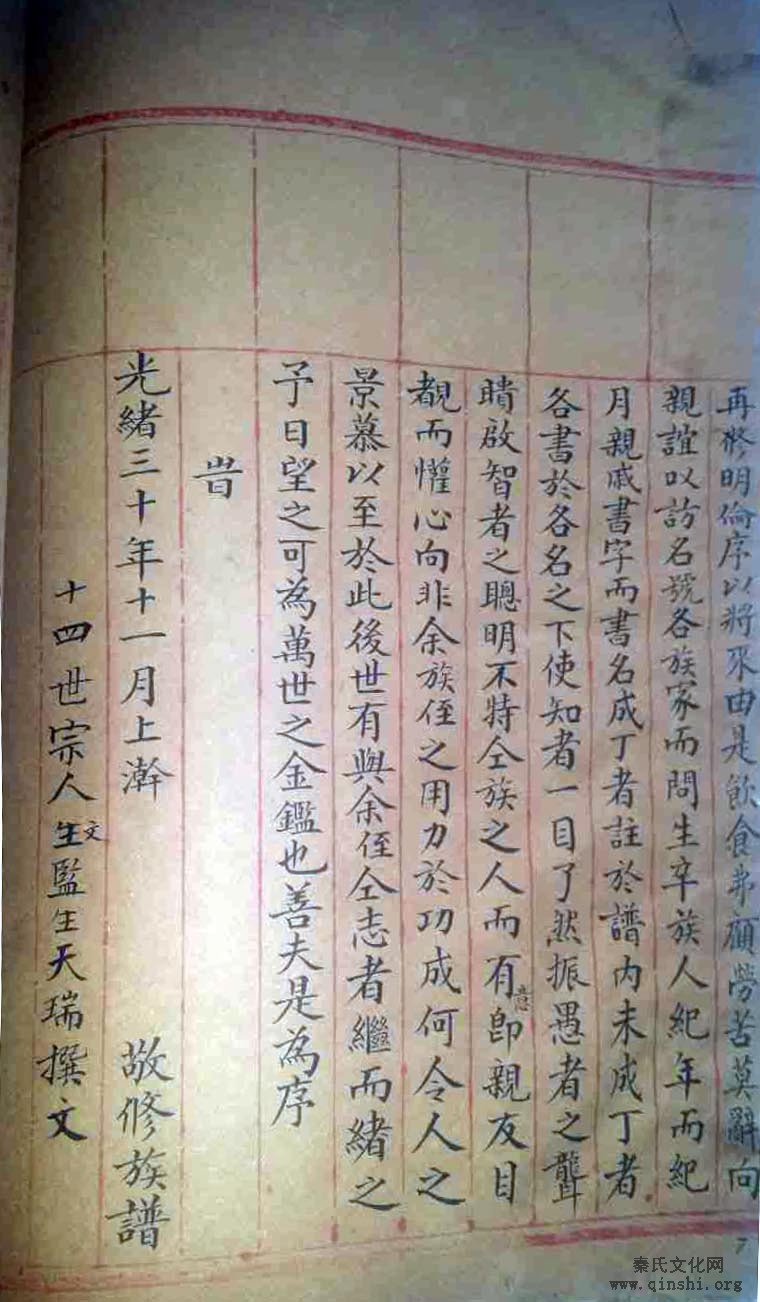 再修明倫序以將來由是飲食弗顧勞苦莫辭向
親誼以訪名號各族家而問生卒族人紀年而紀
月親戚書字而書名成丁者註於譜內未成丁者
各書於各名之下使知者一目了然振愚者之聾
瞶啟智者之聰明不特仝族之人而有意即親友目
覩而懽心向非余族侄之用力於功成何令人之
景慕以至於此後世有與余侄仝志者繼而緒之
予日望之可為萬世之金鑑也善夫是為序
旹
光緒三十年十一月上澣 敬修族譜
十四世宗人文生監生天瑞撰文
7
秦氏文化网
www.qinshi.org